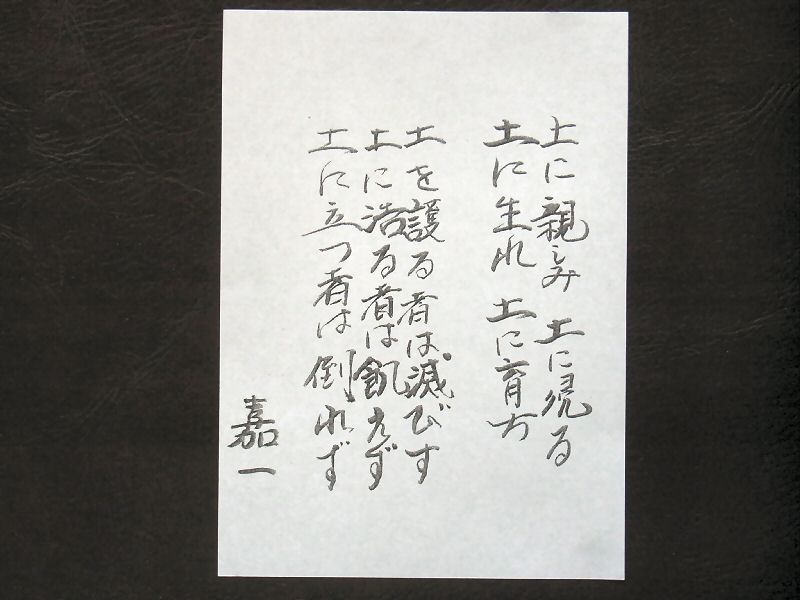 土に親しみ 土に還る
土に生れ 土に育ち
土を護る者は滅びず
土に活る者は飢えず
土に立つ者は倒れず
嘉一